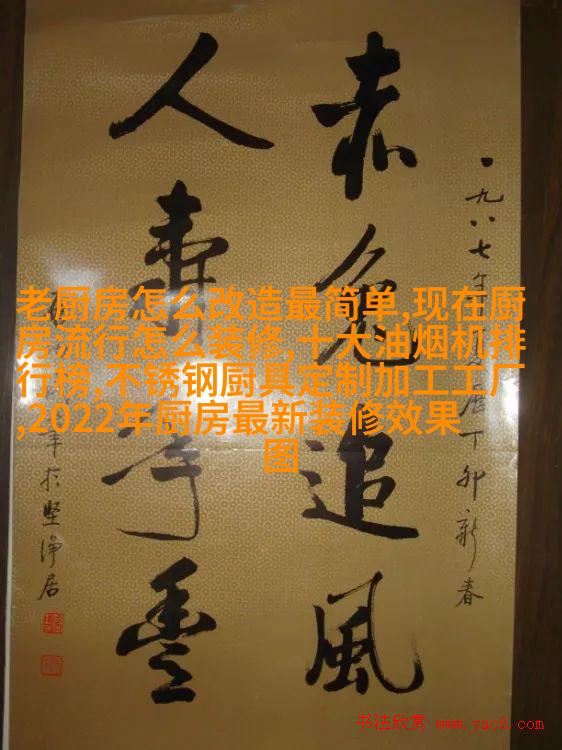 老厨房怎么改造最简单,现在厨
房流行怎么装修,十大油烟机排
行榜,不锈钢厨具定制加工工厂
,2022年厨房最新装修效果
图
一九八七年 丁卯新春
赤兔追風
人壽年豐
年於堅淨居
书法欣赏 www.yac8.com